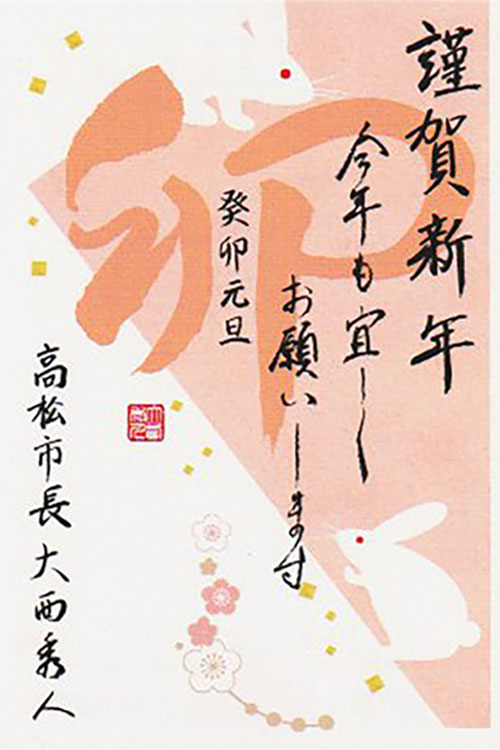 謹賀新年
今年も宜しく
お願いします
癸卯元旦
高松市長 大西秀人
卯